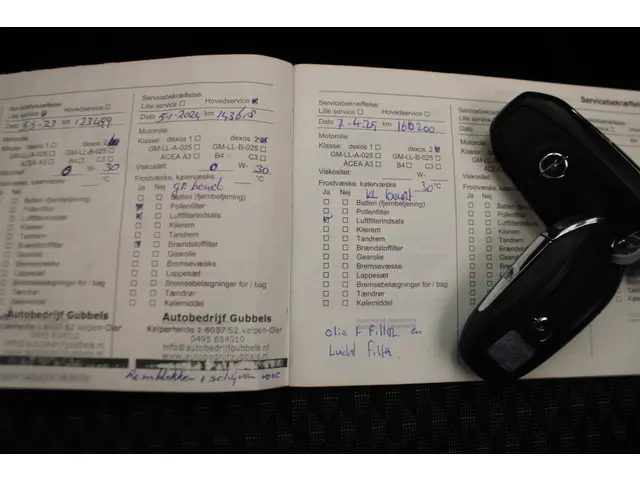 Servicebekræftelse:
Hovedservice
Lille service
Dato 5-5-23 km 123489
Motorolie
Klasse: dexos 1 dexos 2
GM-LL-A-025 GM-LL-B-025
ACEA A3 B4 C3
Viskositet: 0 W- 30
Frostvæske, kølervæske °C
Ja Nej
Batteri (fjernbetjening)
Pollenfilter
Luftfilterindsats
Kilerem
Tandrem
Brændstoffilter
Gearolie
Bremsevæske
Lappesæt
Bremsebelægninger for / bag
Tændrør
Kølemiddel
Autobedrijf Gubbels
Kelperheide 1 6037 SZ Kelpen-Oler
0495 654010
info@autobedrijfgubbels.nl
Servicebekræftelse:
Lille service Hovedservice
Dato 5-1-2024 km 143618
Motorolie
Klasse: dexos 1 dexos 2
GM-LL-A-025 GM-LL-B-025
ACEA A3 B4 C3
Viskositet: 0 W- 30
Frostvæske, kølervæske °C
Ja Nej gr beurt
Batteri (fjernbetjening)
Pollenfilter
Luftfilterindsats
Kilerem
Tandrem
Brændstoffilter
Gearolie
Bremsevæske
Lappesæt
Bremsebelægninger for / bag
Tændrør
Kølemiddel
Autobedrijf Gubbels
Kelperheide 1 6037 SZ Kelpen-Oler
0495 654010
info@autobedrijfgubbels.nl
www.autobedrijfgubbels.nl
Remblokken + schijven voor
Servicebekræftelse:
Lille service Hovedservice
Dato 7-4-25 km 160200
Motorolie
Klasse: dexos 1 dexos 2
GM-LL-A-025 GM-LL-B-025
ACEA A3 B4 C3
Viskositet: W-
Frostvæske, kølervæske -30 °C
Ja Nej kl beurt
Batteri (fjernbetjening)
Pollenfilter
Luftfilterindsats
Kilerem
Tandrem
Brændstoffilter
Gearolie
Bremsevæske
Lappesæt
Bremsebelægninger for / bag
Tændrør
Kølemiddel
olie + Filter en
Lucht filter.
Servicebekræftelse:
Lille service
Dato
Motorolie
Klasse:
Viskositet:
Ja Nej